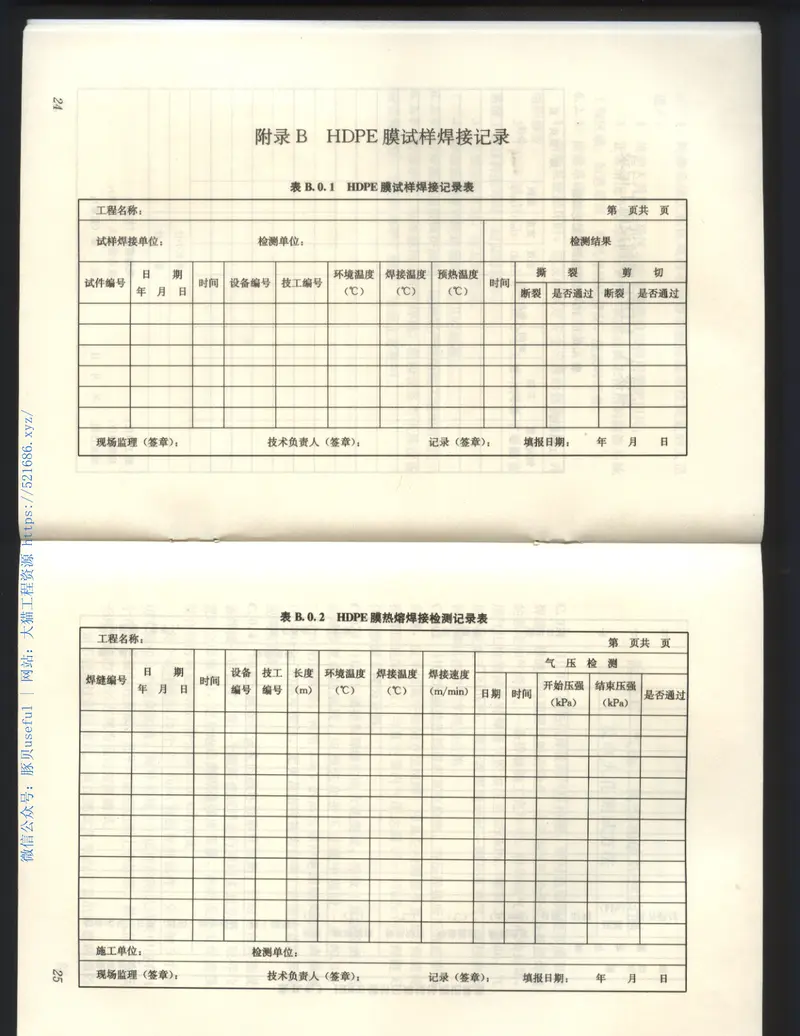 24
附录 B HDPE 膜试样焊接记录
表 B. 0. 1 HDPE 膜试样焊接记录表
工程名称： 第 页共 页
试样焊接单位： 检测单位： 检测结果
试件编号 日 期 年 月 日 时间 设备编号 技工编号 环境温度 （℃） 焊接温度 （℃） 预热温度 （℃） 时间 撕 裂 剪 切
断裂 是否通过 断裂 是否通过
现场监理（签章）： 技术负责人（签章）： 记录（签章）： 填报日期： 年 月 日
表 B. 0. 2 HDPE 膜热熔焊接检测记录表
工程名称： 第 页共 页
焊缝编号 日 期 年 月 日 时间 设备编号 技工编号 长度 （m） 环境温度 （℃） 焊接温度 （℃） 焊接速度 （m/min） 气 压 检 测
日期 时间 开始压强 （kPa） 结束压强 （kPa） 是否通过
施工单位： 检测单位：
现场监理（签章）： 技术负责人（签章）： 记录（签章）： 填报日期： 年 月 日
25
微信公众号：豚贝useful | 网站：大猫工程资源 https://521686.xyz/